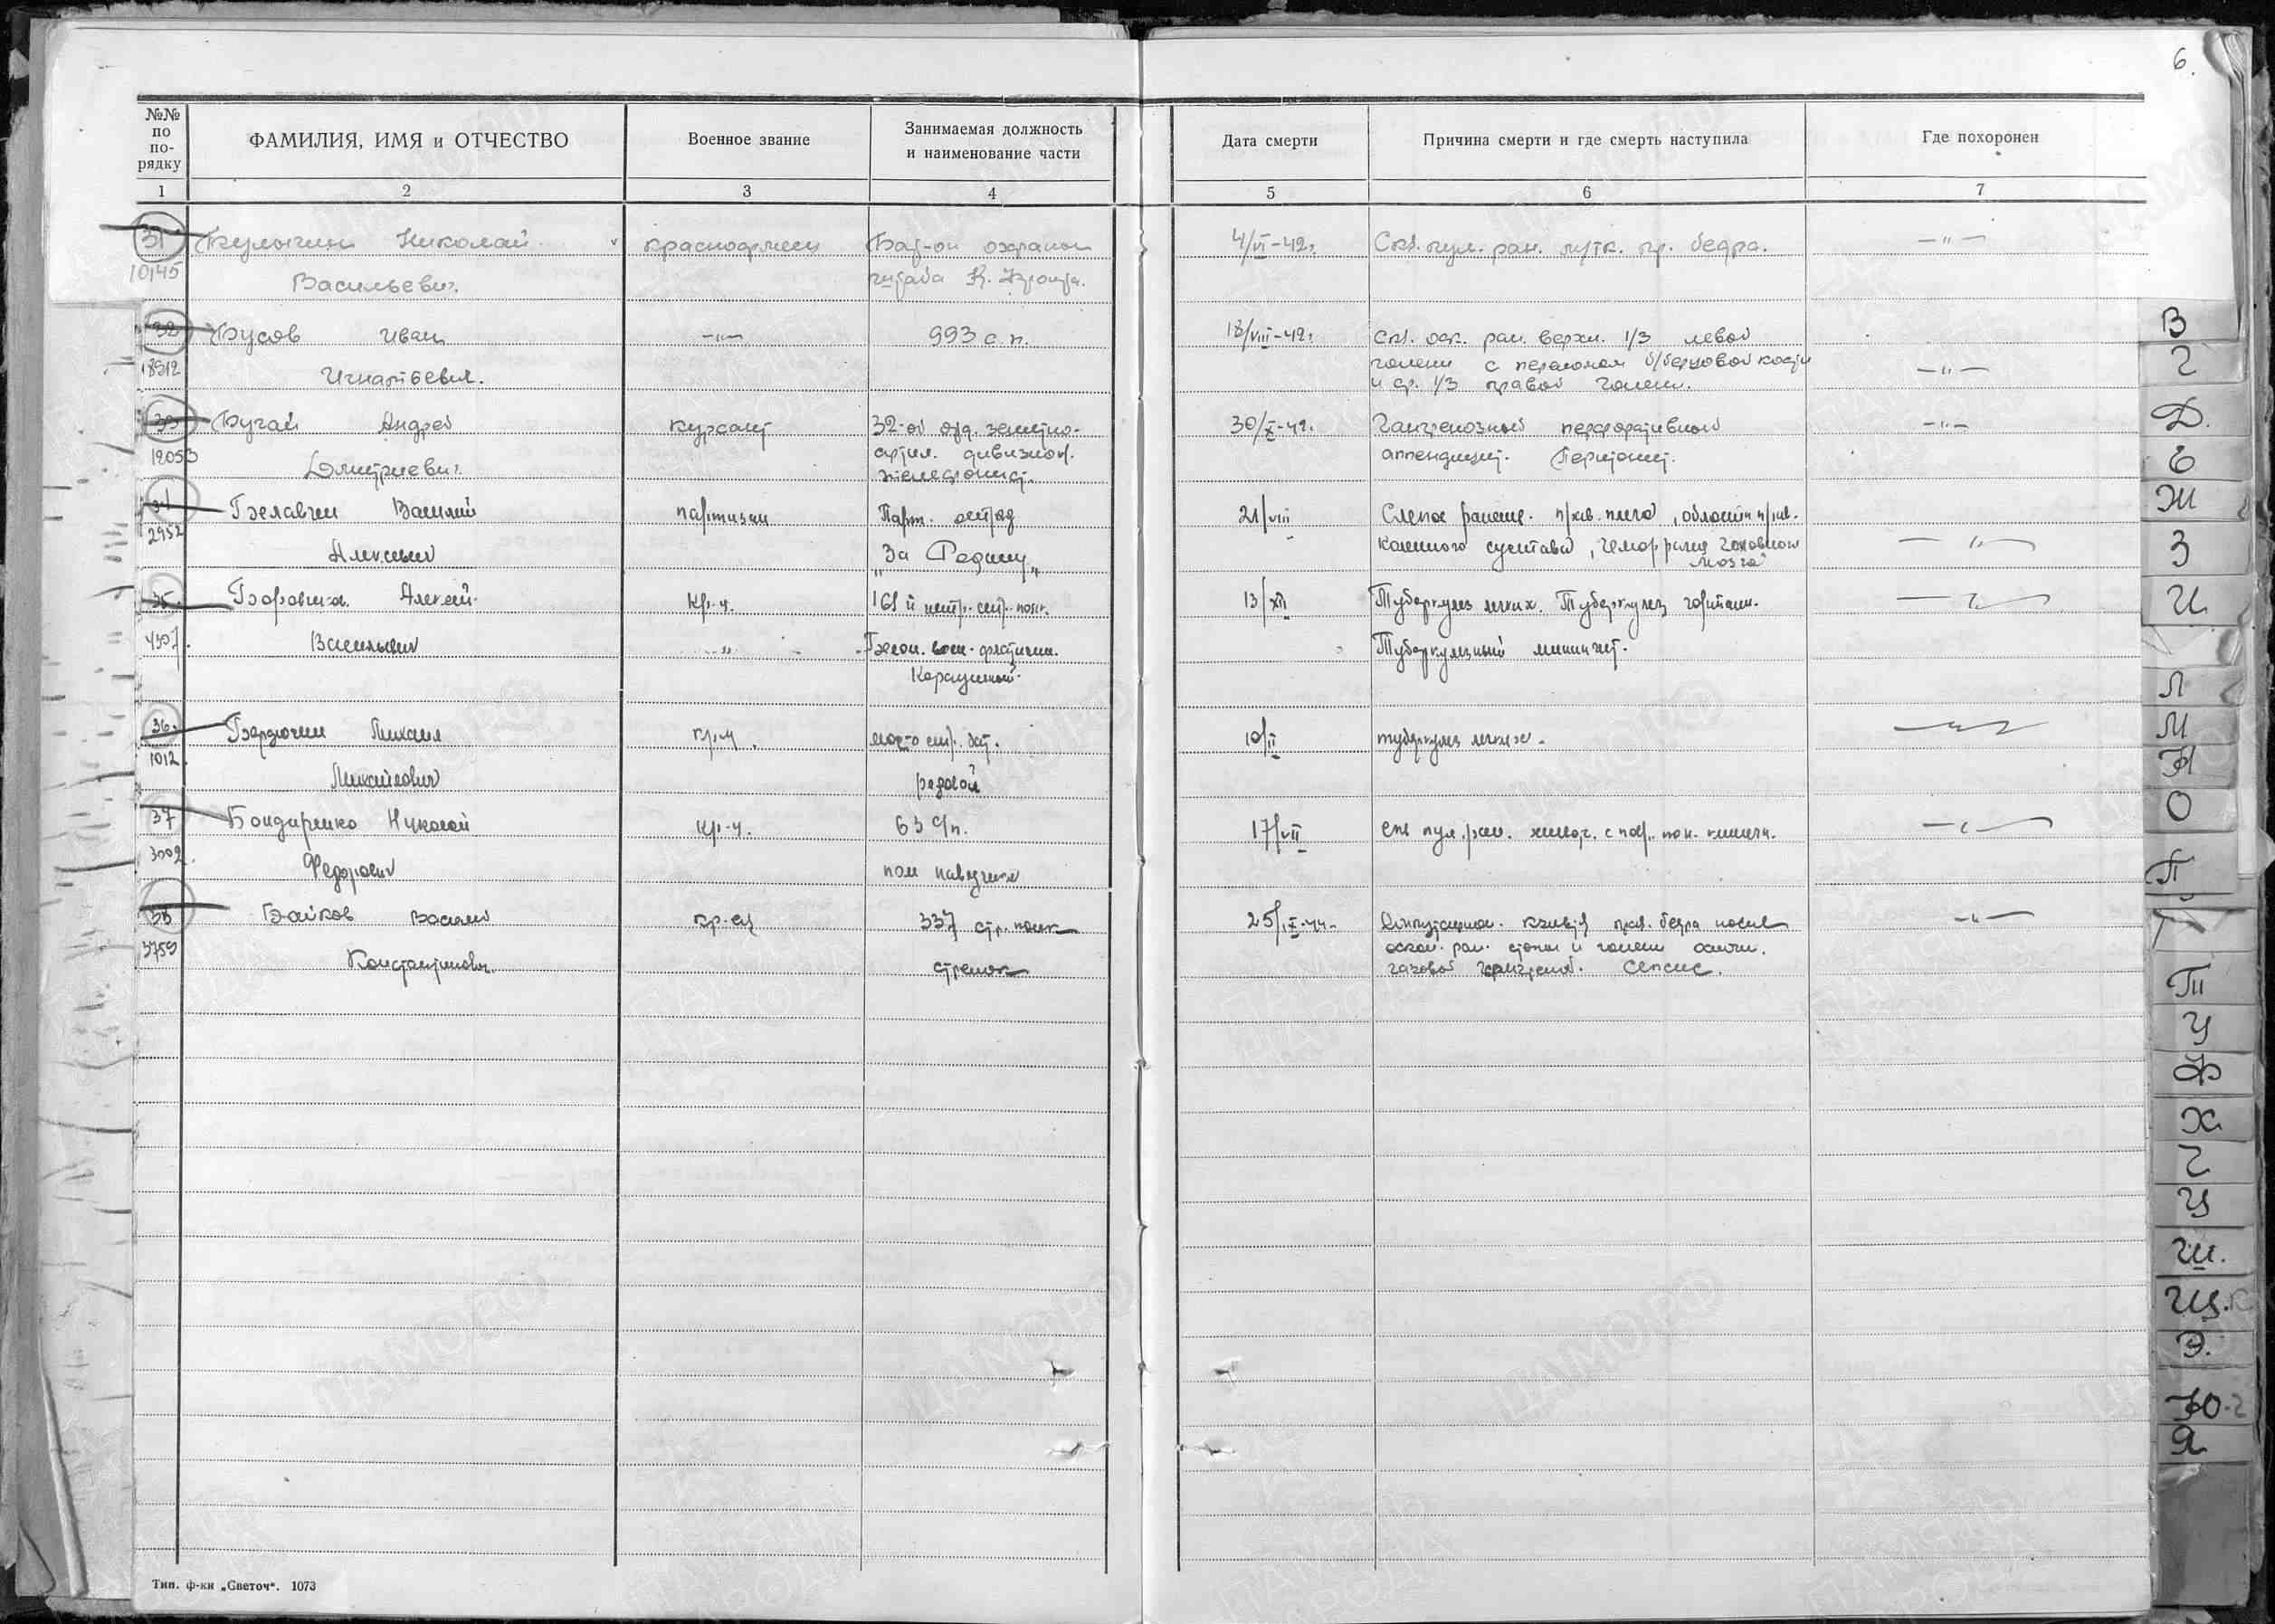 6.
№№ по по-рядку
ФАМИЛИЯ, ИМЯ и ОТЧЕСТВО
Военное звание
Занимаемая должность и наименование части
Дата смерти
Причина смерти и где смерть наступила
Где похоронен
1 2 3 4 5 6 7
31 Булыгин Николай красноармеец Бат-он охраны 4/VI-42г. Скв. пул. ран. мтк. пр. бедра. —"—
10145 Васильевич. штаба К. Фронта.
32 Бусов Иван —"— 993 с. п. 18/VIII-42г. Скв. оск. ран. верхн. 1/3 левой
голени с переломом б/берцовой кости
8312 Игнатьевич. и ср. 1/3 правой голени. —"—
33 Бугай Андрей курсант 32-ой отд. зенитно- 30/X-42г. Гангренозный перфоративный —"—
12053 Дмитриевич. артил. дивизион. аппендицит. Перитонит.
34 Белавин Василий партизан Парт. отряд 21/VIII Слепое ранение. плеча, области
2952 Алексеевич „За Родину„ коленного сустава, головного мозга —"—
35. Алексей кр-ц. 13/XII Туберкулез легких. Туберкулез гортани. —"—
4307. Васильевич —"— Туберкулезный менингит.
Караульный.
36. Михаил кр-ц. 10/II туберкулез легких. —"—
1012 Михайлович рядовой
37 Бондаренко Николай кр-ц. 63 с/п. 17/VII пул. ран. —"—
3002. Федорович пом наводчика
38 Байков Василий кр-ец 337 стр. полк 25/IX-44. прав. бедра после —"—
3759 Константинович. стрелок оскол. ран. стопы и голени
газовой гангреной. Сепсис.
В
Г
Д.
Е
Ж
З
И
Л
М
Н
О
П
Т
У
Ф
Х
Ц
Ш.
Щ.
Э.
Ю
Я
Тип. ф-ки „Светоч“. 1073